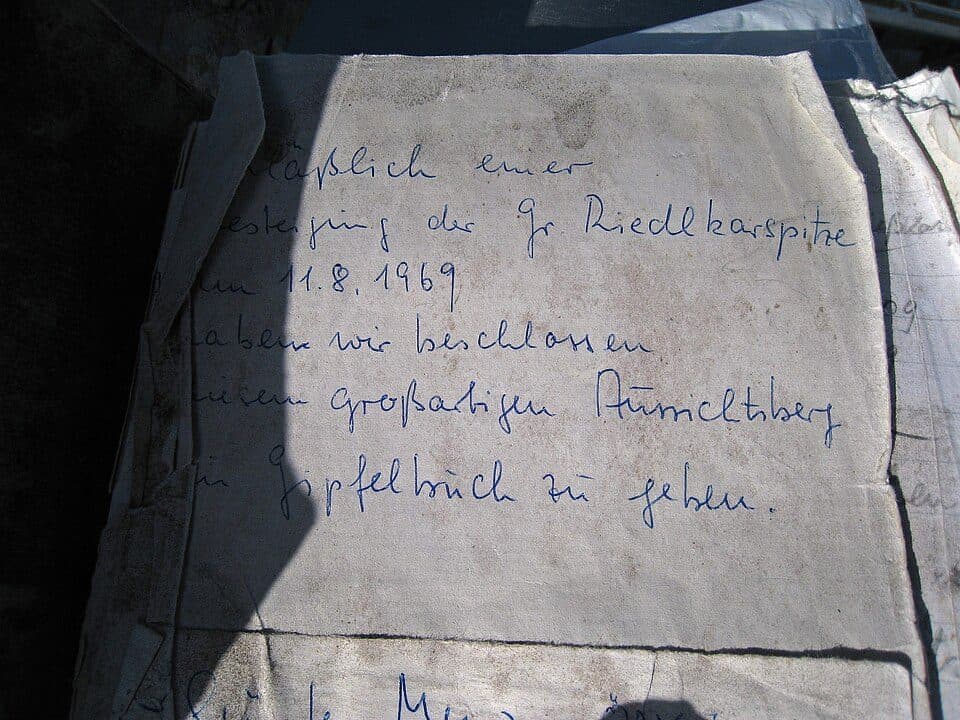 äßlich einer
esteigung der Gr. Riedlkarspitze
am 11.8.1969
aben wir beschlossen
iesem großartigen Aussichtsberg
in Gipfelbuch zu geben.